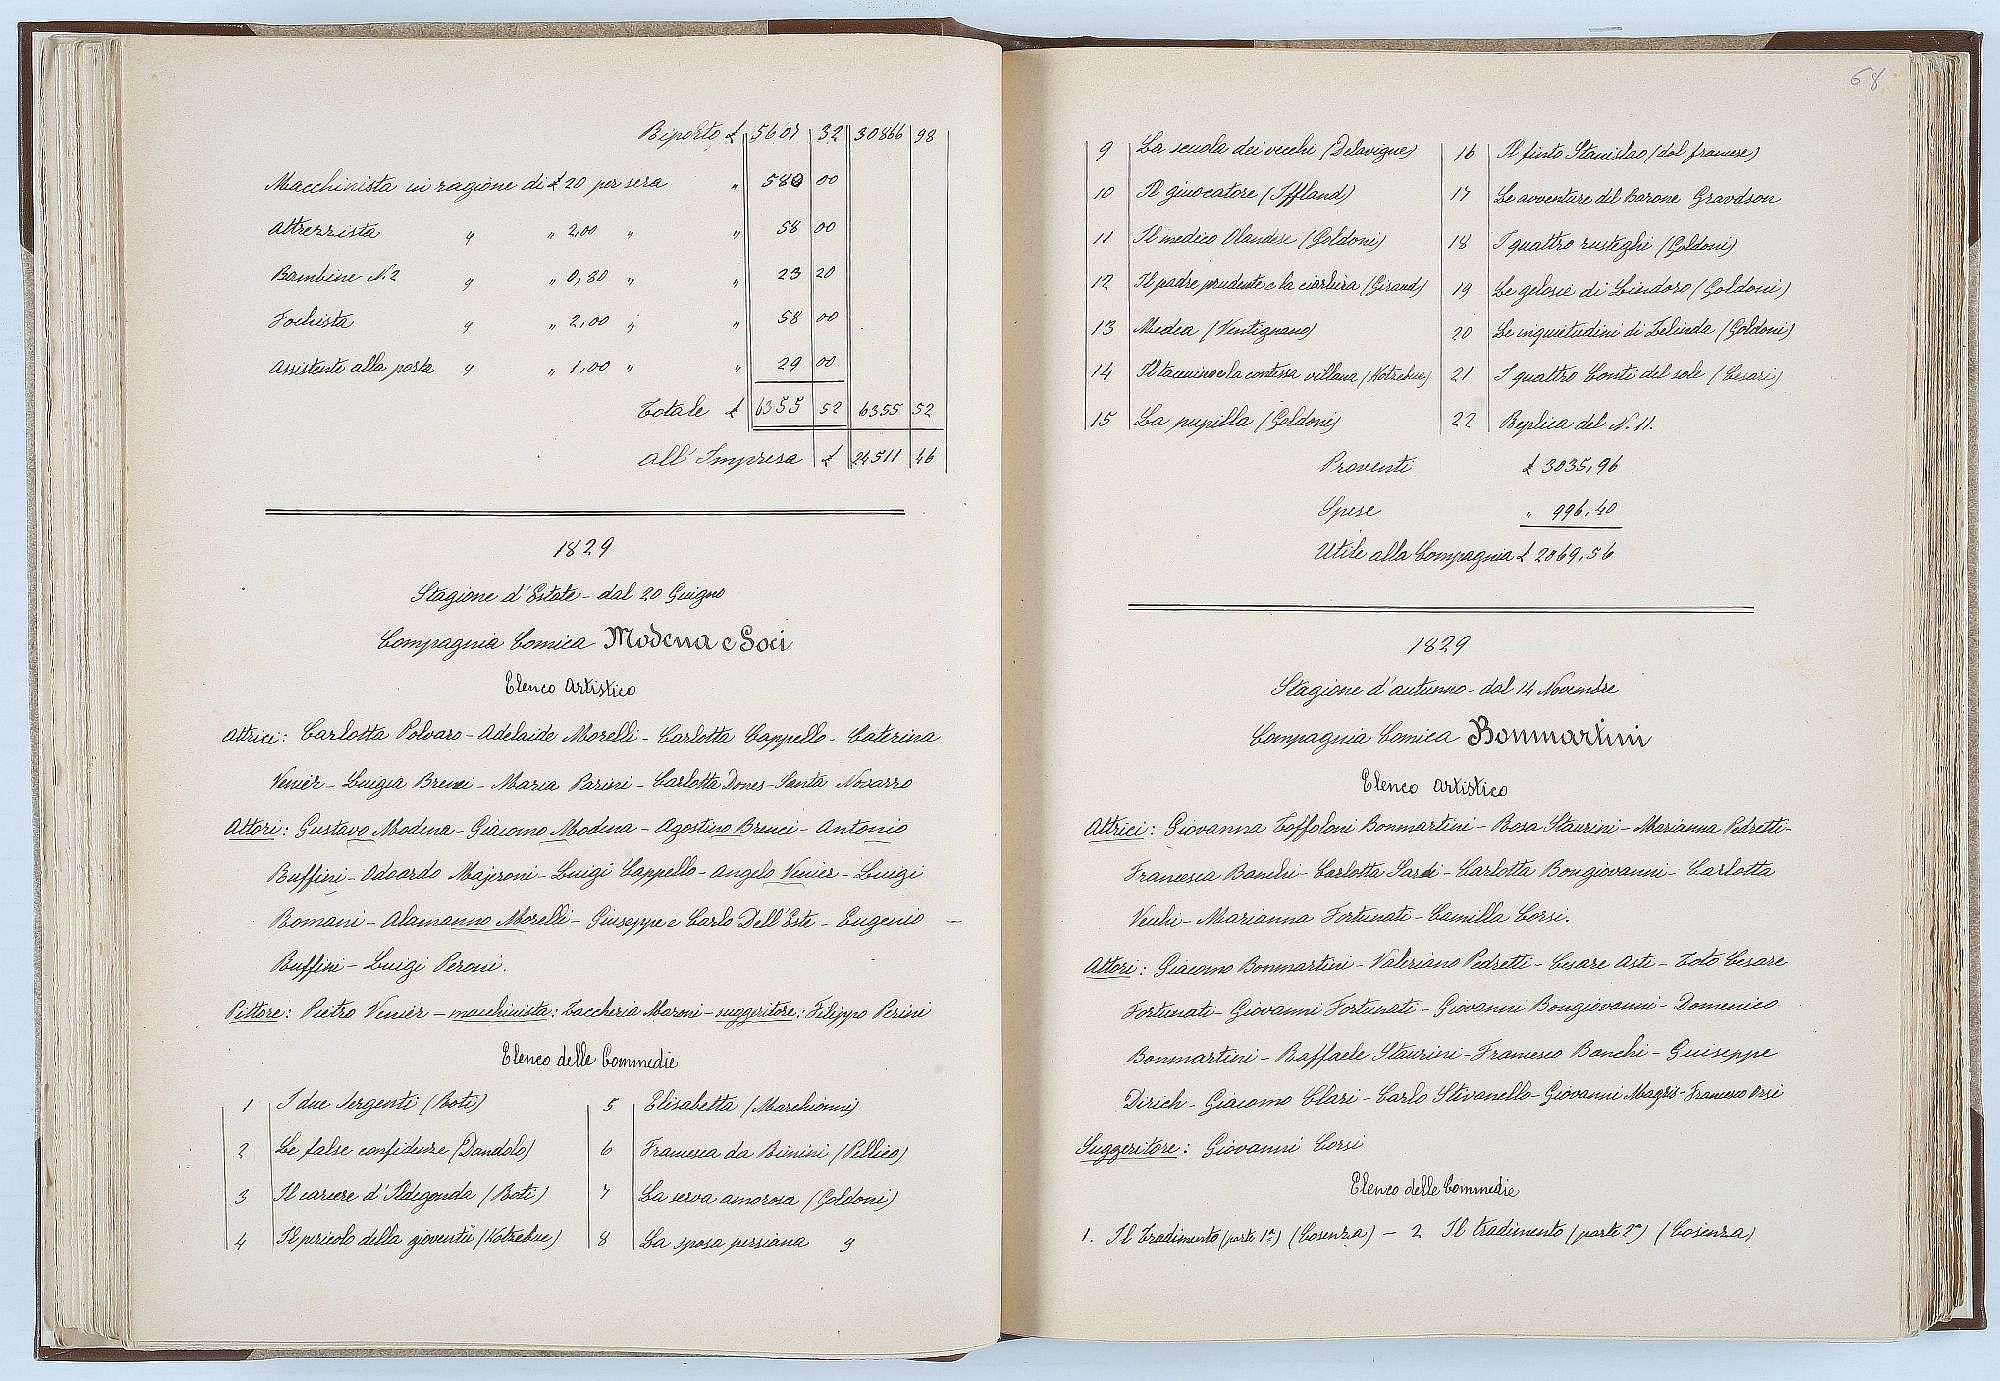 Riporto £ 5607 32 30866 98
Macchinista in ragione di £ 20 per sera " 580 00
Attrezzista " " 2,00 " " 58 00
Bambine N. 2 " " 0,80 " " 23 20
Fochista " " 2,00 " " 58 00
Assistente alla porta " " 1,00 " " 29 00
Totale £ 6355 52 6355 52
All' Impresa £ 24511 46
1829
Stagione d'Estate - dal 20 Giugno
Compagnia Comica Modena e Soci
Elenco Artistico
Attrici: Carlotta Polvaro - Adelaide Morelli - Carlotta Cappello - Caterina
Venier - Luigia Brenci - Maria Parini - Carlotta Dones - Santa Novarro
Attori: Gustavo Modena - Giacomo Modena - Agostino Brenci - Antonio
Ruffini - Odoardo Majeroni - Luigi Cappello - Angelo Venier - Luigi
Romani - Alamanno Morelli - Giuseppe e Carlo Dell'Este - Eugenio -
Ruffini - Luigi Peroni.
Pittore: Pietro Venier - macchinista: Zaccheria Maroni - suggeritore: Filippo Perini
Elenco delle Commedie
1 I due Sergenti (Roti)
2 Le false confidenze (Dandolo)
3 Il carcere d'Ildegonda (Roti)
4 Il pericolo della gioventù (Kotzebue)
5 Elisabetta (Marchionni)
6 Francesca da Rimini (Pellico)
7 La serva amorosa (Goldoni)
8 La sposa persiana "
68
9 La scuola dei vecchi (Delavigne)
10 Il giuocatore (Iffland)
11 Il medico Olandese (Goldoni)
12 Il padre prudente e la ciarliera (Giraud)
13 Medea (Ventignano)
14 Il taccuino e la contessa villana (Kotzebue)
15 La pupilla (Goldoni)
16 Il finto Stanislao (dal francese)
17 Le avventure del Barone Gravdson
18 I quattro rusteghi (Goldoni)
19 Le gelosie di Lindoro (Goldoni)
20 Le inquietudini di Zelinda (Goldoni)
21 I quattro Conti del sole (Cesari)
22 Replica del N. 11.
Proventi £ 3035,96
Spese " 996,40
Utile alla Compagnia £ 2069,56
1829
Stagione d'autunno - dal 14 Novembre
Compagnia Comica Bonmartini
Elenco Artistico
Attrici: Giovanna Toffoloni Bonmartini - Rosa Staurini - Marianna Pedretti -
Francesca Banchi - Carlotta Sardi - Carlotta Bongiovanni - Carlotta
Vechi - Marianna Fortunati - Camilla Corsi.
Attori: Giacomo Bonmartini - Valeriano Pedretti - Cesare Asti - Toto Cesare
Fortunati - Giovanni Fortunati - Giovanni Bongiovanni - Domenico
Bonmartini - Raffaele Staurini - Francesco Banchi - Guiseppe
Dirich - Giacomo Clari - Carlo Stivanello - Giovanni Magris - Francesco Orsi
Suggeritore: Giovanni Corsi
Elenco delle Commedie
1. Il Tradimento (parte 1ª) (Cosenza) - 2 Il tradimento (parte 2ª) (Cosenza)